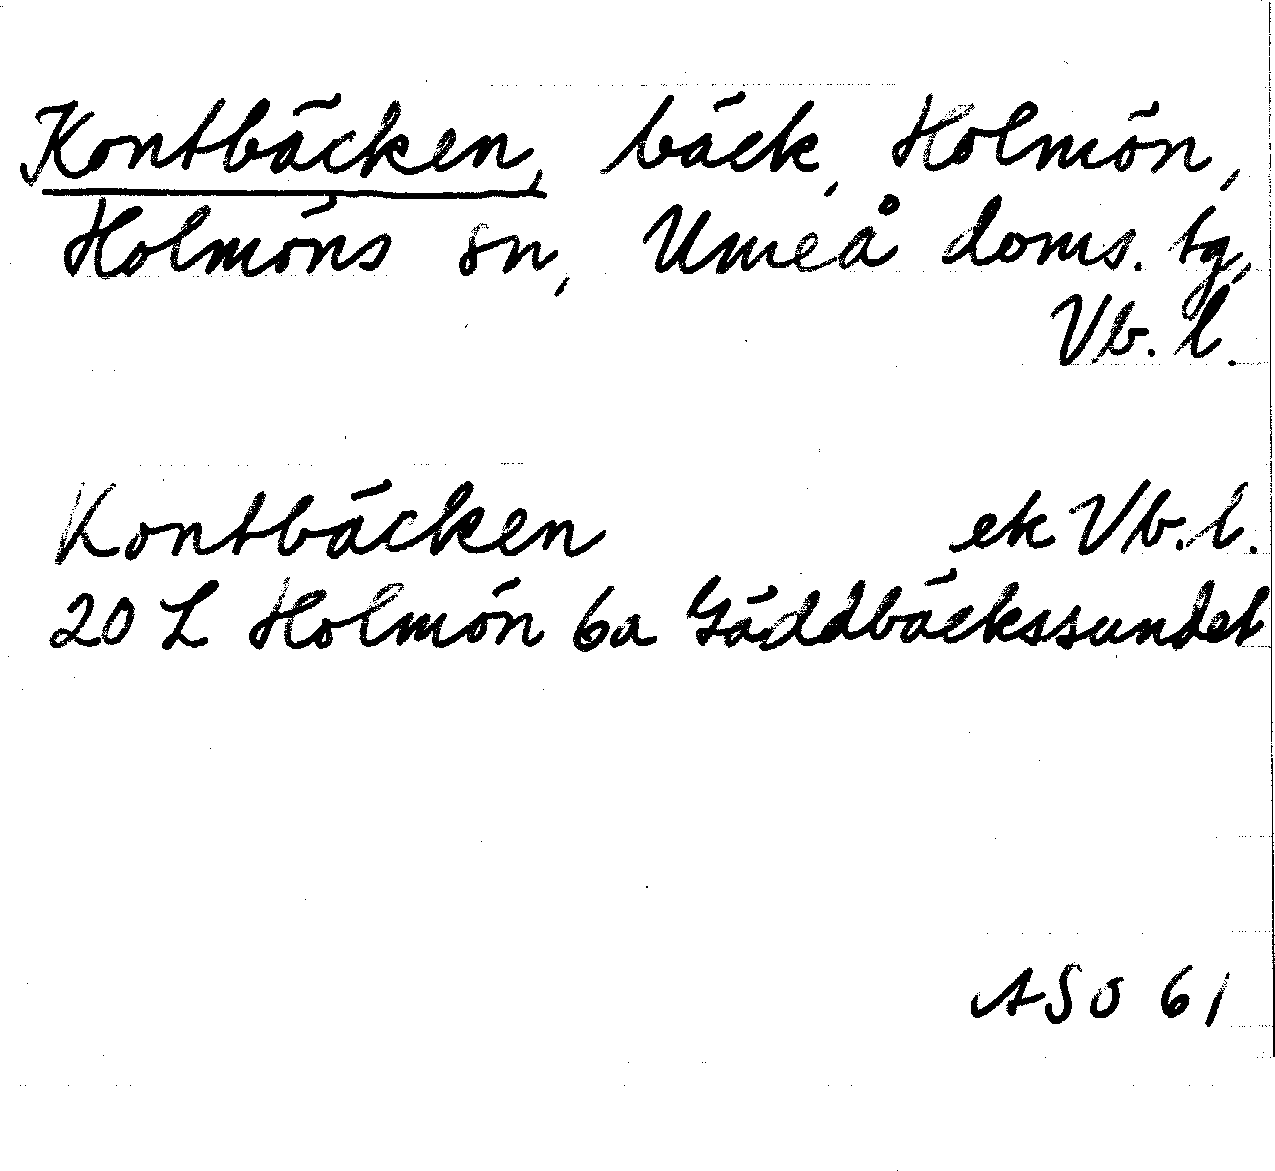 Kontbäcken, bäck, Holmön,
Holmöns sn, Umeå doms. tg,
Vb. l.
Kontbäcken ek Vb. l.
20 L Holmön 6a Gäddbäckssundet
ASO 61